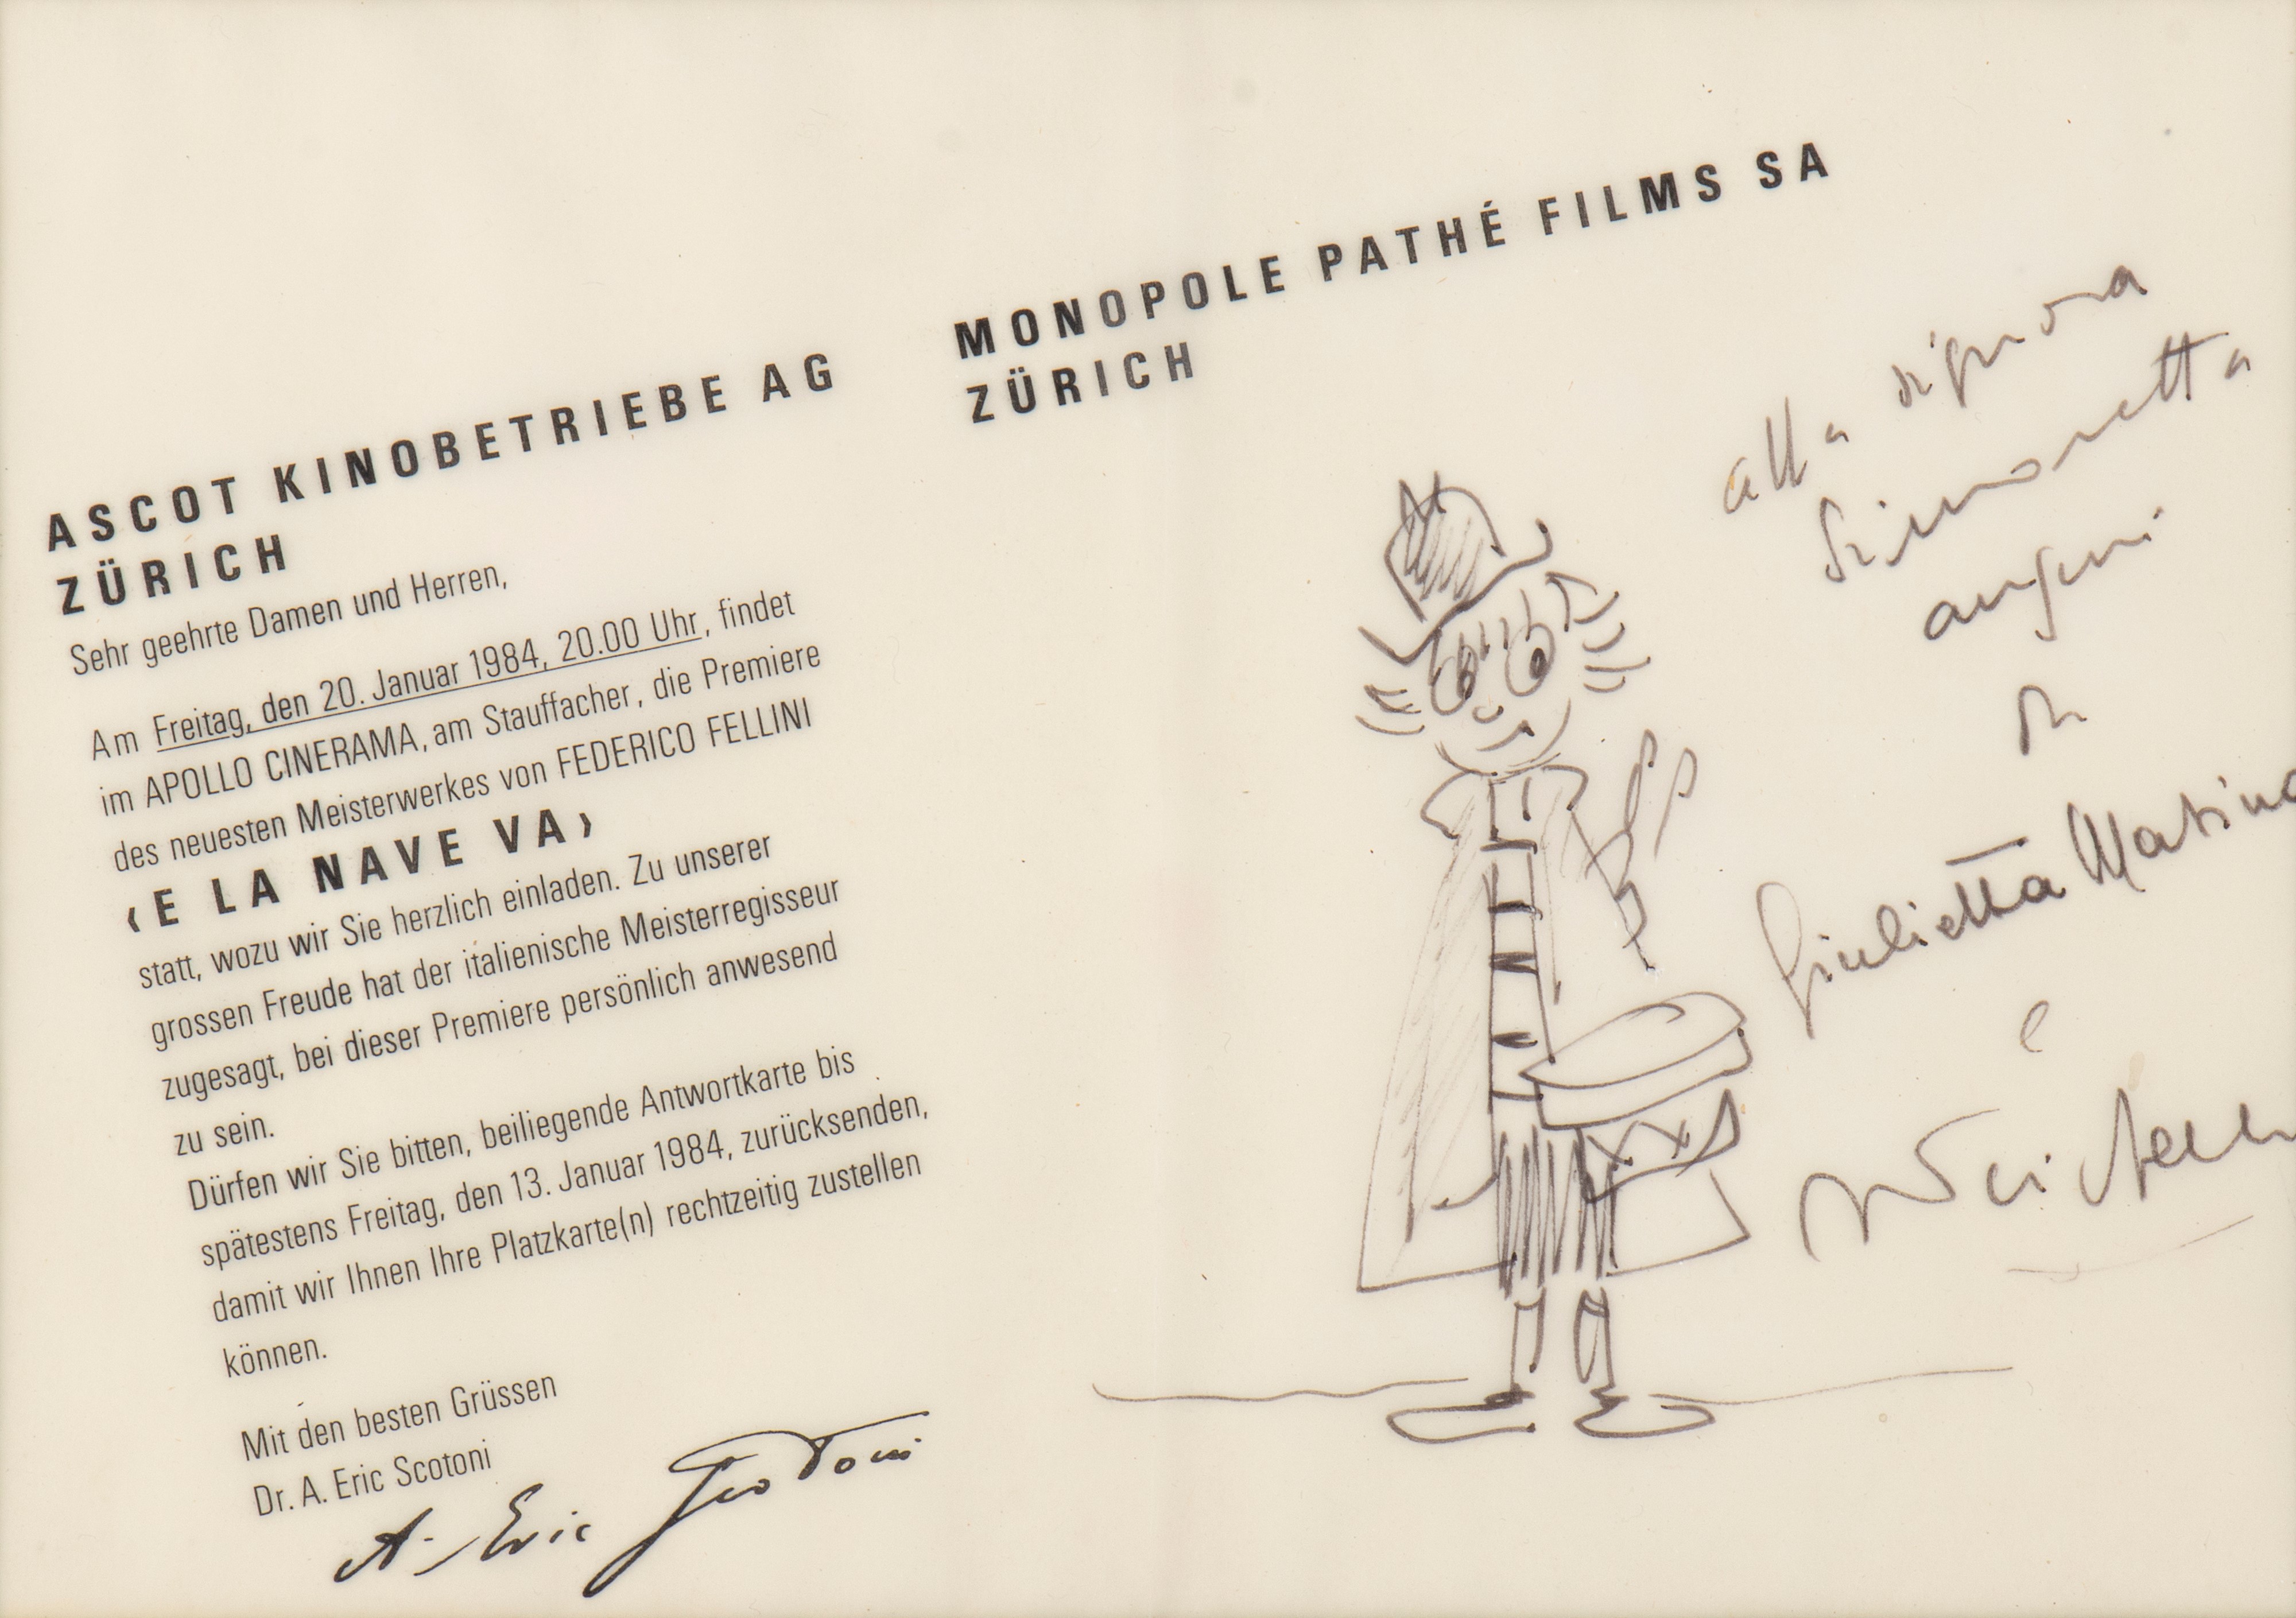 ASCOT KINOBETRIEBE AG
ZÜRICH
MONOPOLE PATHÉ FILMS SA
ZÜRICH
Sehr geehrte Damen und Herren,
Am Freitag, den 20. Januar 1984, 20.00 Uhr, findet
im APOLLO CINERAMA, am Stauffacher, die Premiere
des neuesten Meisterwerkes von FEDERICO FELLINI
‹E LA NAVE VA›
statt, wozu wir Sie herzlich einladen. Zu unserer
grossen Freude hat der italienische Meisterregisseur
zugesagt, bei dieser Premiere persönlich anwesend
zu sein.
Dürfen wir Sie bitten, beiliegende Antwortkarte bis
spätestens Freitag, den 13. Januar 1984, zurücksenden,
damit wir Ihnen Ihre Platzkarte(n) rechtzeitig zustellen
können.
Mit den besten Grüssen
Dr. A. Eric Scotoni
A. Eric Scotoni
alla signora
Simonetta
auguri
di
Giulietta Masina
e